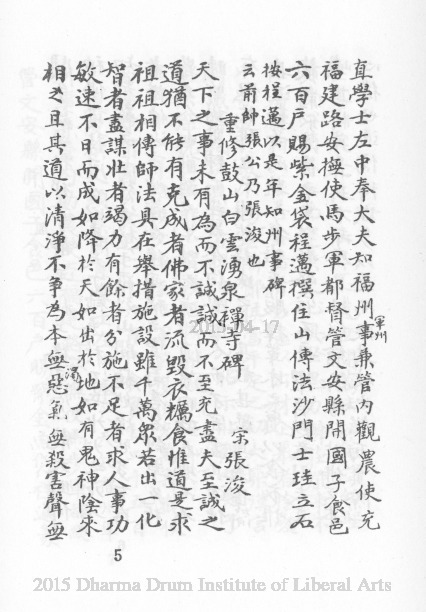 直學士左中奉大夫知福州軍州事兼管內觀農使充
福建路安撫使馬步軍都督管文安縣開國子食邑
六百戶賜紫金袋程邁撰住山傳法沙門士珪立石
按程邁以是年知州事碑
云前帥張公乃張浚也
重修鼓山白雲湧泉禪寺碑 宋張浚
天下之事未有為而不誠誠而不至充盡夫至誠之
道猶不能有克成者佛家者流毀衣糲食惟道是求
祖祖相傳師法具在舉措施設雖千萬眾若出一化
智者盡謀壯者竭力有餘者分施不足者求人事功
敏速不日而成如降於天如出於地如有鬼神陰來
相之且其道以清淨不爭為本無惉濁氣無殺害聲無
5
2015-04-17
2015 Dharma Drum Institute of Liberal Arts